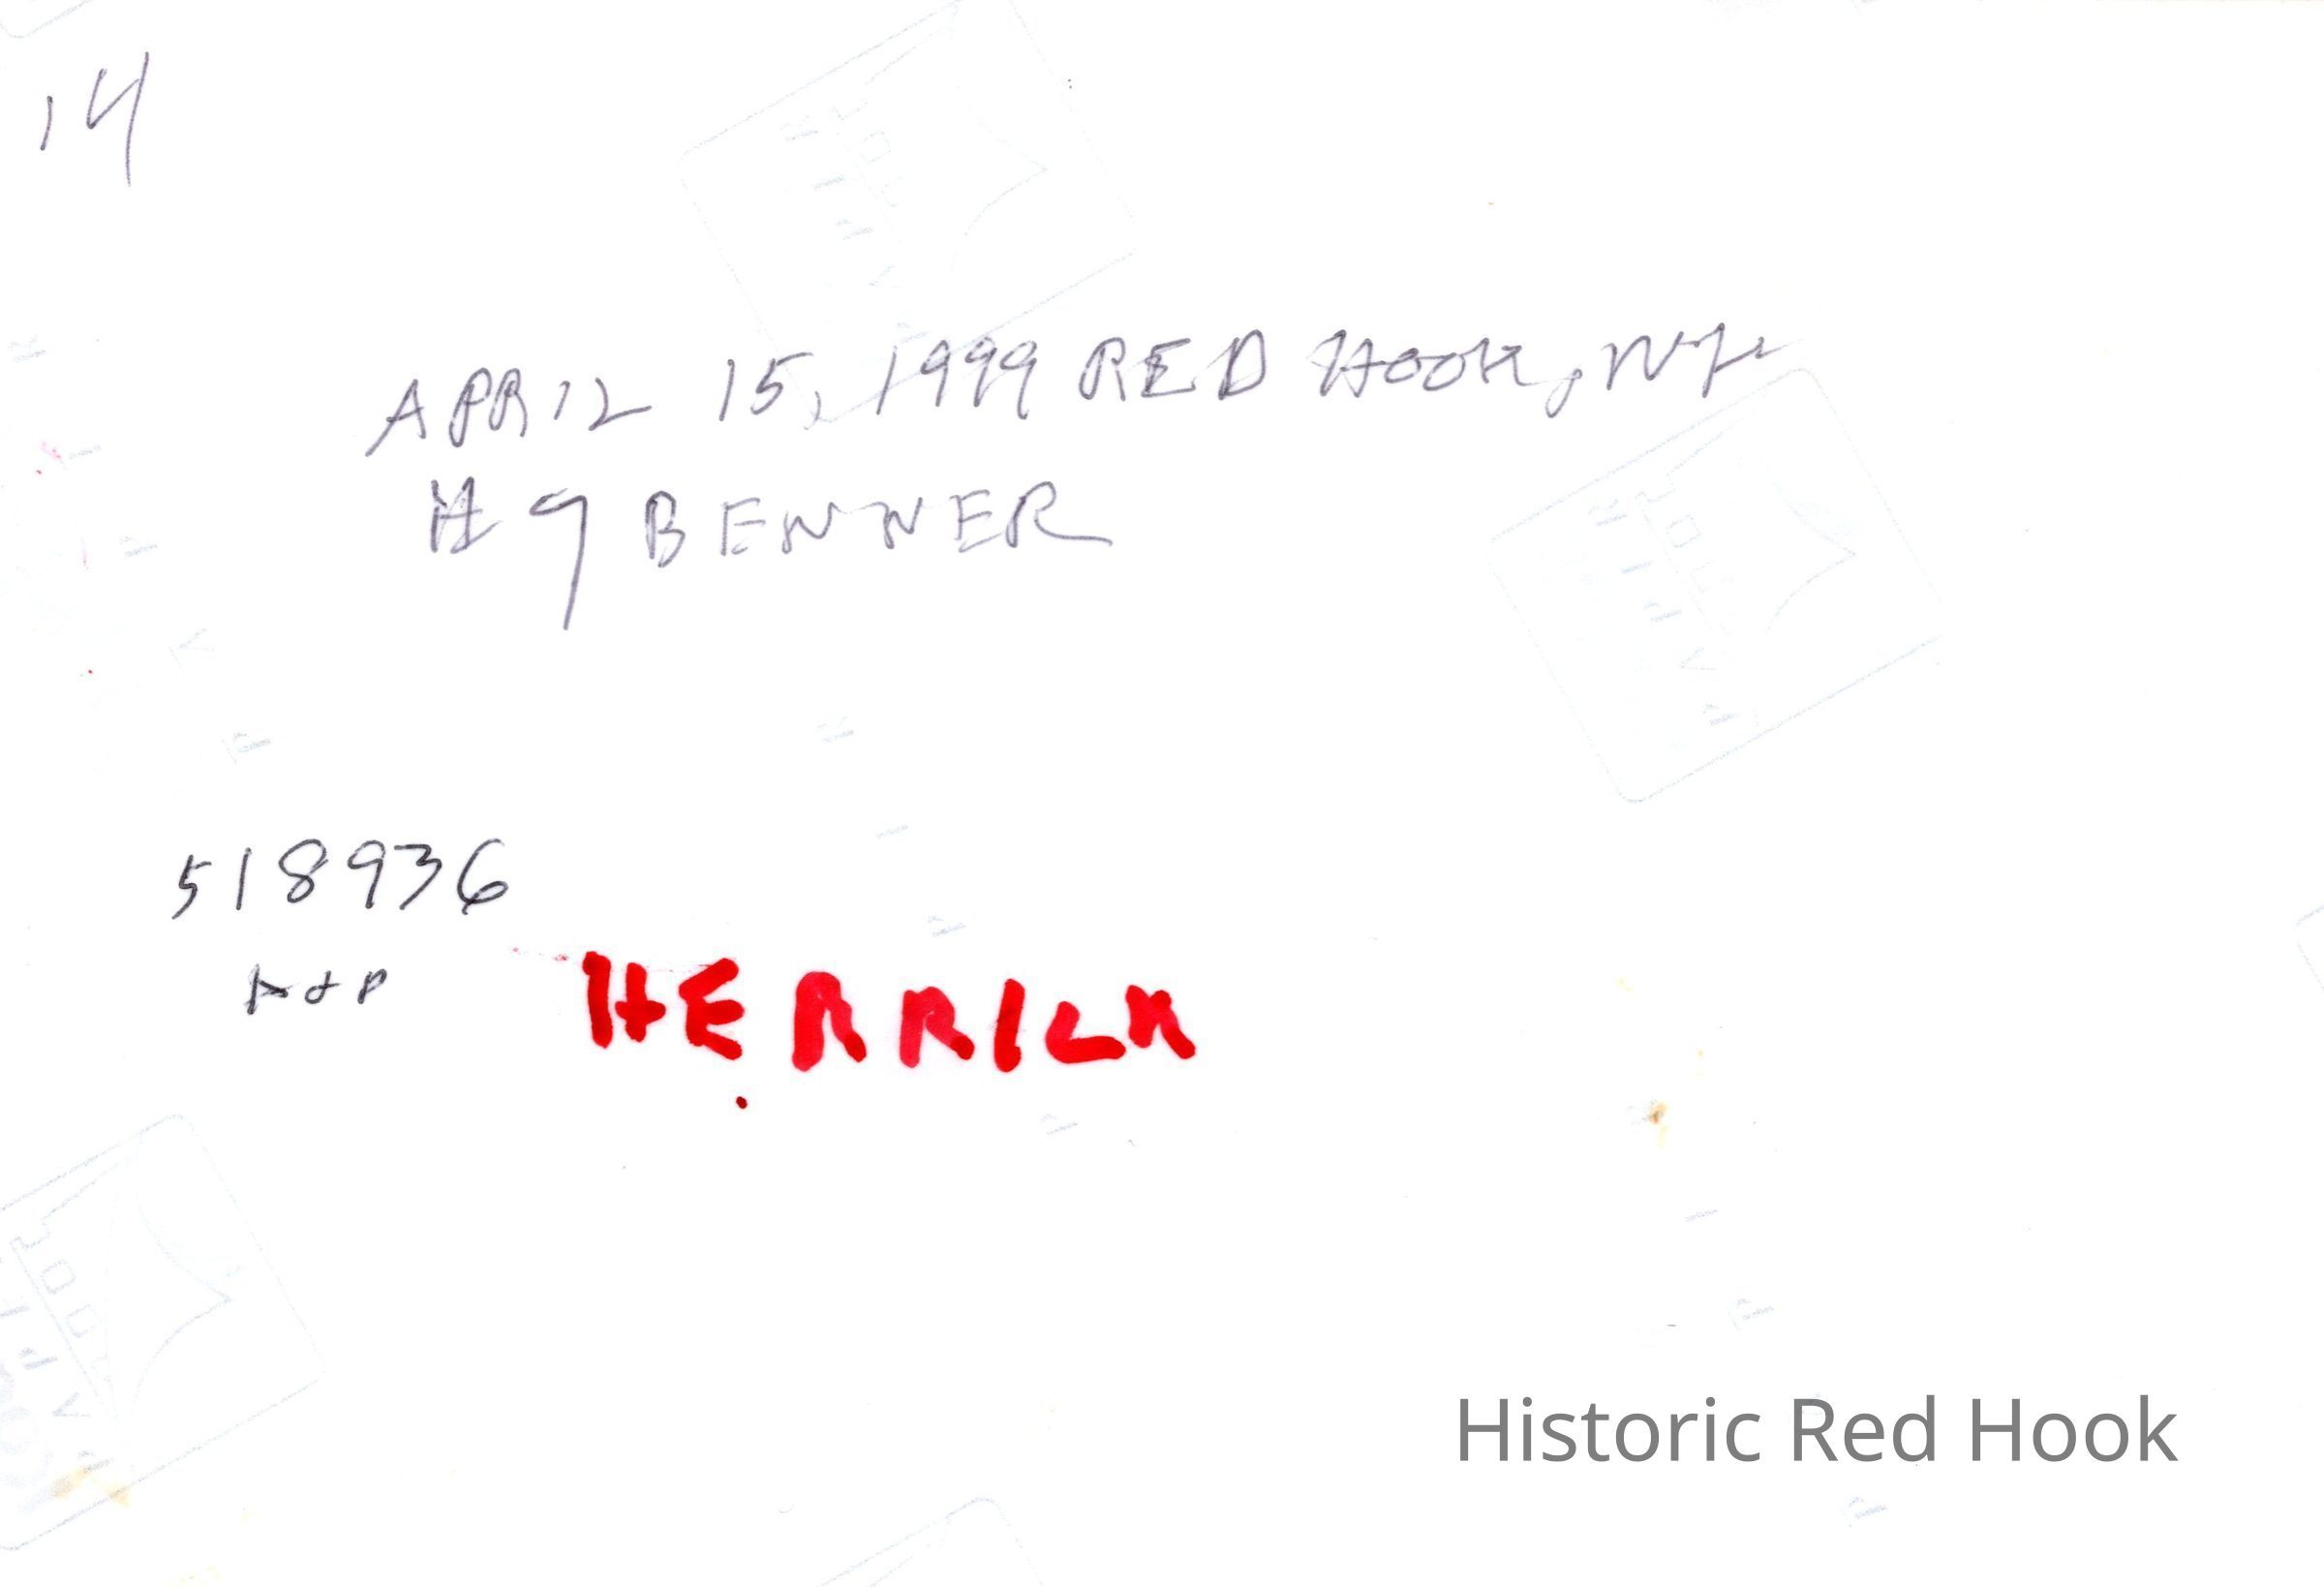 14
APRIL 15, 1999 RED HOOK, NY
# 9 BENNER
518936
HERRICK
Historic Red Hook